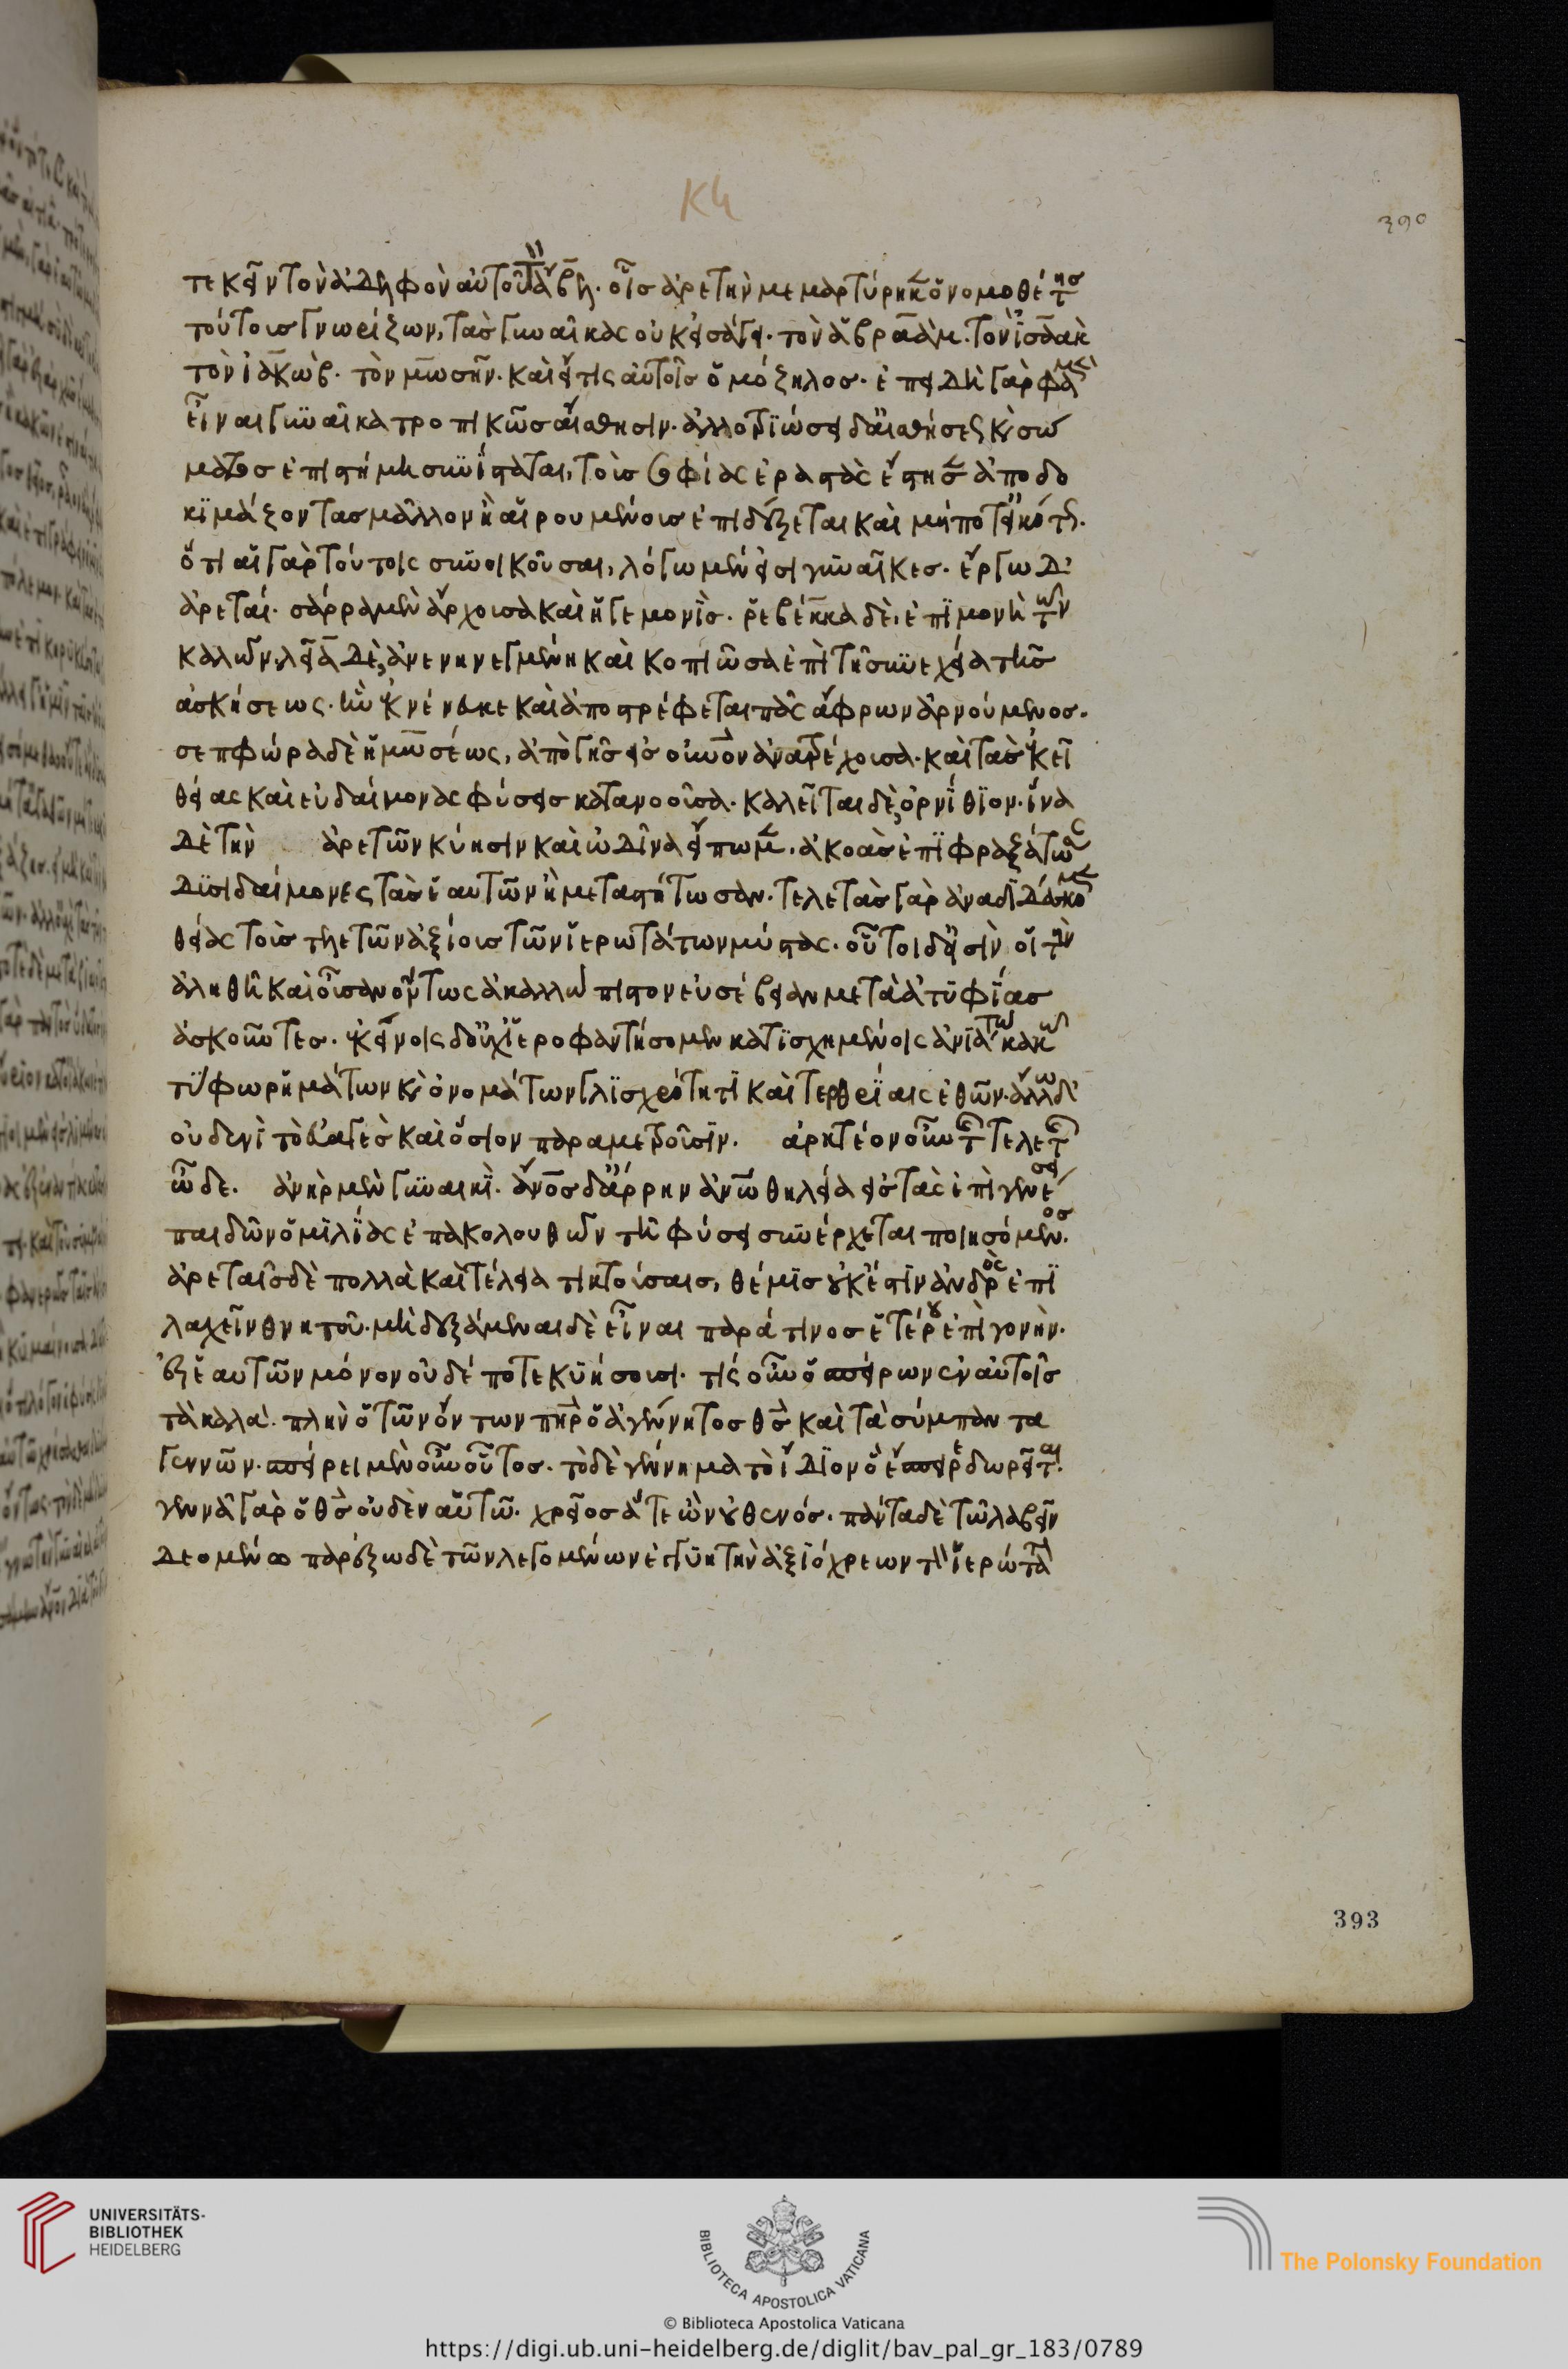 κη
390
τεκεῖν τὸν ἀδελφὸν αὐτοῦ τ(ὸν) ἄβελ. οἷς ἀρετὴν μεμαρτύρηκ(εν) ὁ νομοθέτης
τούτους γνωρίζων, τὰς γυναῖκας οὐκ εἰσάγει. τὸν ἀβραὰμ. τὸν ἰσαὰκ
τὸν ἰακώβ. τὸν μωσῆν. καὶ εἴ τις αὐτοῖς ὁμόζηλος. ἐπειδὴ γὰρ φαμὲν
εἶναι γυναῖκα τροπικῶς αἴσθησιν. ἀλλοτριώσει δ' αἰσθήσεως καὶ σώ
ματος ἐπιστήμη συνίσταται, τοὺς σοφίας ἐραστὰς ἀποδο
κιμάζοντας μᾶλλον ἢ αἱρουμένους ἐπιδείξεται καὶ μήποτ' εἰκότως.
ὅτι αἱ γὰρ τούτοις συνοικοῦσαι, λόγω μέν εἰσι γυναῖκες. ἔργω δ'
ἀρεταί. σάρρα μὲν ἄρχουσα καὶ ἡγεμονὶς. ῥεβέκκα δὲ, ἐπιμονὴ τῶν
καλῶν, λεία δὲ, καὶ κοπιῶσα ἐπὶ τῆ συνεχεία τῆς
ἀσκήσεως. ἣν ἐκνένευκε καὶ ἀποστρέφεται πᾶς ἄφρων ἀρνούμενος.
σεπφώρα δὲ ἡ μωσέως, ἀπὸ γῆς εἰς οὐρανὸν ἀνατρέχουσα. καὶ τὰς ἐκεῖ
θείας καὶ εὐδαίμονας φύσεις κατανοοῦσα. καλεῖται δὲ, ὀρνίθιον. ἵνα
δὲ τὴν ἀρετῶν κύησιν καὶ ὠδῖνα εἴπωμεν. ἀκοὰς ἐπιφραξάτωσαν
δισιδαίμονες τὰς ἑαυτῶν ἢ μεταστήτωσαν. τελετὰς γὰρ ἀναδιδάσκομεν
θείας τοὺς τελετῶν ἀξίους τῶν ἱερωτάτων μύστας. οὗτοι δ' εἰσὶν οἱ τὴν
ἀληθῆ καὶ οὖσαν ὄντως ἀκαλλώπιστον εὐσέβειαν μετὰ ἀτυφίας
ἀσκοῦντες. ἐκείνοις δ' οὐχ ἱεροφαντήσομεν κατισχημένοις ἀνιάτω κακῶ
τύφω ῥημάτων καὶ ὀνομάτων γλισχρότητι καὶ τερθρίαις ἐθῶν. ἄλλω δ'
οὐδενὶ τὸ εὐαγὲς καὶ ὅσιον παραμετροῦσιν. ἀρκτέον οὖν τῆς τελετῆς
ὧδε. ἀνὴρ μὲν γυναικὶ. ἄν(θρωπ)ος δ' ἄρρην ἀν(θρώπ)ω θηλεία εἰς τὰς ἐπὶ γενέσει
παιδῶν ὁμιλίας ἐπακολουθῶν τῆ φύσει συνέρχεται ποιησόμενος.
ἀρεταῖς δὲ πολλὰ καὶ τέλεια τικτούσαις, θέμις οὐκ ἔστιν ἀνδρὸς ἐπι
λαχεῖν θνητοῦ. μὴ δεξάμεναι δὲ εἶναι παρά τινος ἑτέρου ἐπιγονὴν.
ἐξ ἑαυτῶν μόνον οὐδέποτε κυήσουσι. τίς οὖν ὁ σπείρων ἐν αὐτοῖς
τὰ καλὰ. πλὴν ὁ τῶν ὄντων π(ατ)ὴρ ὁ ἀγέννητος θ(εὸ)ς καὶ τὰ σύμπαντα
γεννῶν. σπείρει μὲν οὖν οὗτος. τὸ δὲ γέννημα τὸ ἴδιον ὃ ἔσπειρε δωρεῖται.
γεννᾶ γὰρ ὁ θ(εὸ)ς οὐδὲν αὑτῶ. χρεῖος ἅτε ὢν οὐθενός. πάντα δὲ τῶ λαβεῖν
δεομένω παρέξω δὲ τῶν λεγομένων ἐγγυητὴν ἀξιόχρεων τὸν ἱερώτατ(ον)
393
UNIVERSITÄTS-
BIBLIOTHEK
HEIDELBERG
BIBLIOTECA APOSTOLICA VATICANA
The Polonsky Foundation
© Biblioteca Apostolica Vaticana
https://digi.ub.uni-heidelberg.de/diglit/bav_pal_gr_183/0789